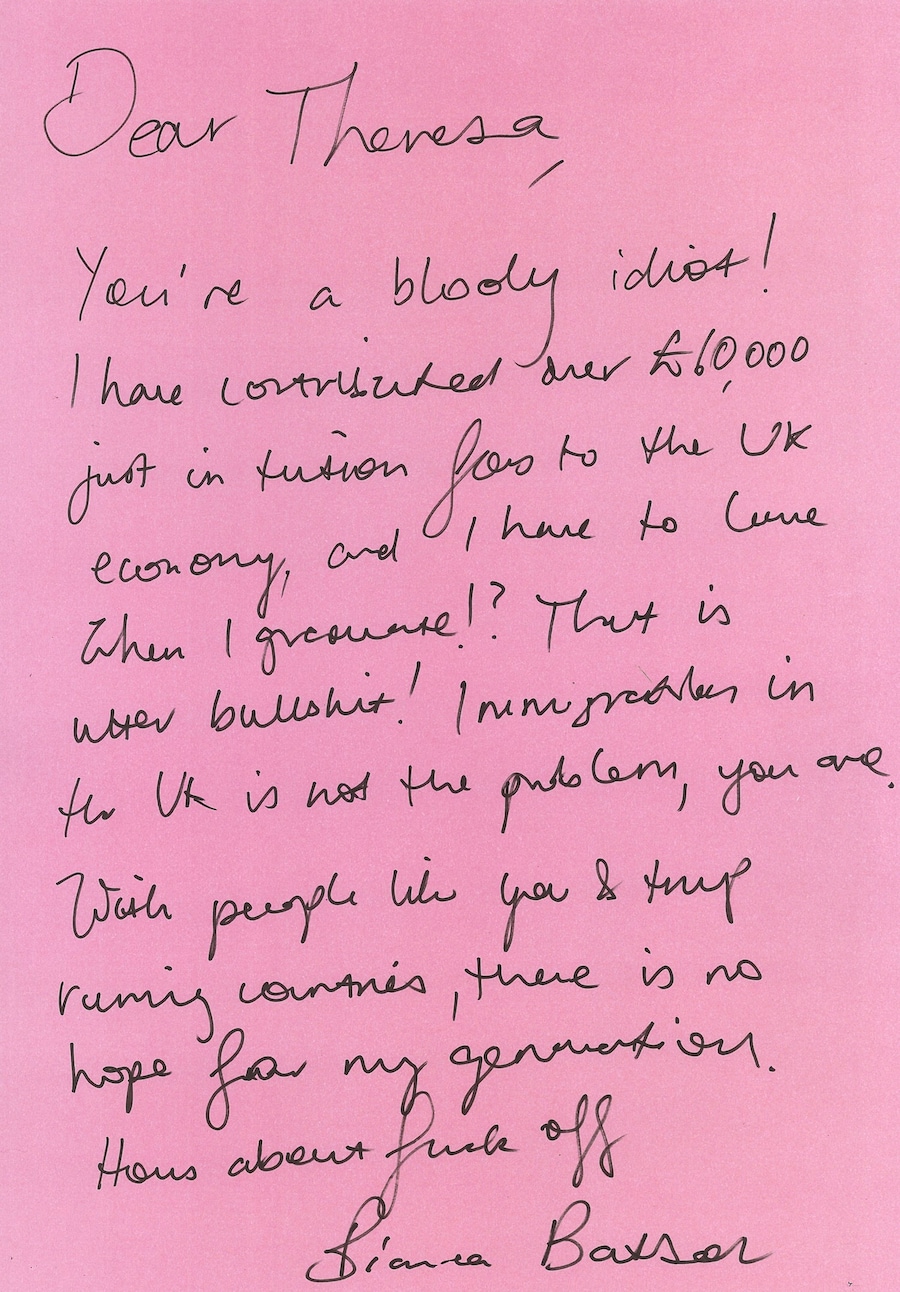 Dear Theresa,
You're a bloody idiot!
I have contributed over £60,000
just in tution fees to the UK
economy, and I have to leave
When I graduate!? That is
utter bullshit! Immigration in
the UK is not the problem, you are.
With people like you & trump
running countries, there is no
hope for my generation.
Hows about fuck off
Bianca